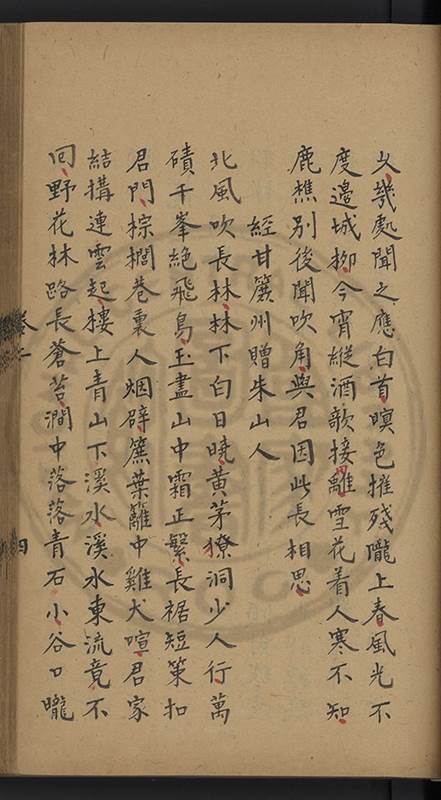 火幾處聞之應白首暝色摧殘隴上春風光不
度邊城柳今宵縱酒歌接䍦雪花着人寒不知
鹿樵別後聞吹角與君因此長相思
經甘簝州贈朱山人
北風吹長林林下白日曉黄茅獠洞少人行萬
磧千峯絶飛鳥玉盡山中霜正繁長裾短策扣
君門棕櫚巷裏人烟辟䉲葉籬中雞犬喧君家
結搆連雲起樓上青山下溪水溪水東流竟不
囘野花林路長蒼苔澗中落落青石小谷口曨
四